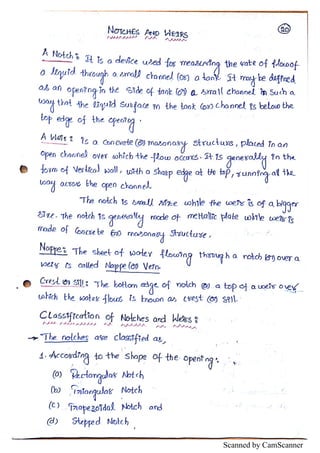 NOTCHES AND WEIRS
50
A Notch: It is a device used for measuring the rate of flow of
a liquid through a small channel (or) a tank. It may be defined
as an opening in the side of tank (or) a small channel in such a
way that the liquid surface in the tank (or) channel is below the
top edge of the opening.
A Weir: is a concrete (or) masonary structure, placed in an
open channel over which the flow occurs. It is generally in the
form of Vertical wall, with a sharp edge at the top, running all the
way across the open channel.
The notch is small size while the weir is of a bigger
size. The notch is generally made of metallic plate while weir is
made of Concrete (or) masonary Structure.
Nappe: The sheet of water flowing through a notch (or) over a
weir is called Nappe (or) Vein.
Crest (or) Sill: The bottom edge of notch (or) a top of a weir over
which the water flows is known as crest (or) sill.
Classification of Notches and Weirs:
→ The notches are classified as,
1. According to the shape of the opening:
(a) Rectangular Notch
(b) Triangular Notch
(c) Trapezoidal Notch and
(d) Stepped Notch.
Scanned by CamScanner